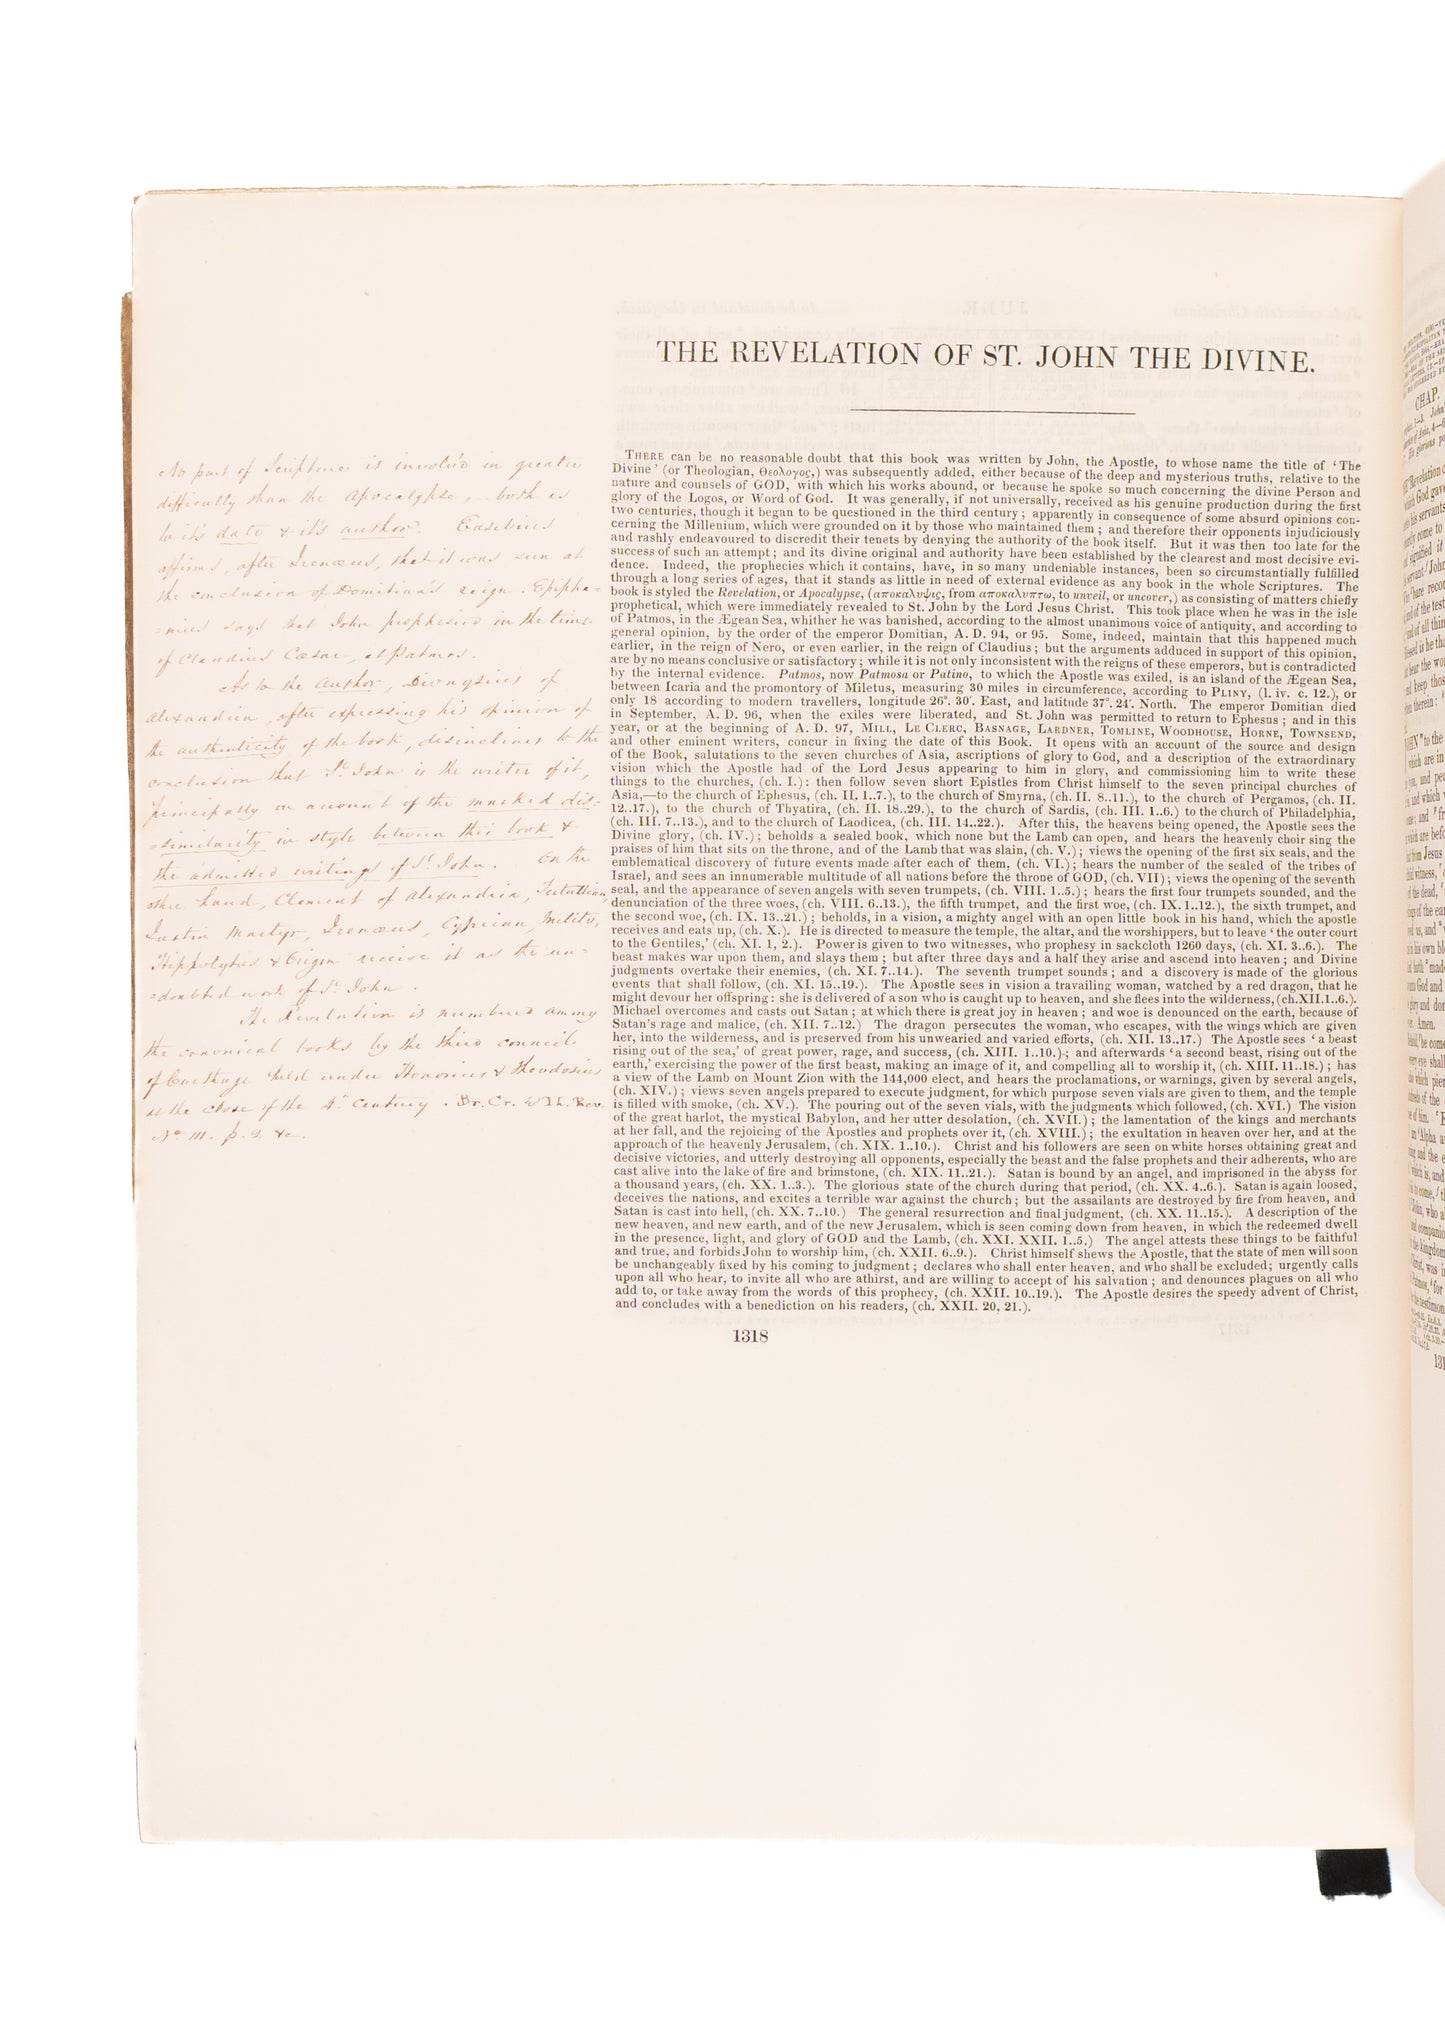 THE REVELATION OF ST. JOHN THE DIVINE.
No part of Scripture is involv'd in greater
difficulty than the Apocalypse, both as
to it's date & it's author. Eusebius
affirms, after Irenæus, that it was seen at
the conclusion of Domitian's reign. Epipha-
=nius says that John prophesied in the time
of Claudius Cæsar, at Patmos.
As to the Author, Dionysius of
Alexandria, after expressing his opinion of
the authenticity of the book, disinclines to the
conclusion that St. John is the writer of it,
principally on account of the marked dis=
=similarity in style between this book &
the admitted writings of St. John. On the
other hand, Clement of Alexandria, Tertullian,
Justin Martyr, Irenæus, Cyprian, Melito,
Hippolytus & Origin receive it as the un=
=doubted work of St. John.
The Revelation is numbered among
the canonical books by the third council
of Carthage held under Honorius & Theodosius
at the close of the 4th Century. Br. Cr. & Th. Rev.
No. III. p. 2. &c.
THERE can be no reasonable doubt that this book was written by John, the Apostle, to whose name the title of ‘The
Divine’ (or Theologian, Θεολογος,) was subsequently added, either because of the deep and mysterious truths, relative to the
nature and counsels of GOD, with which his works abound, or because he spoke so much concerning the divine Person and
glory of the Logos, or Word of God. It was generally, if not universally, received as his genuine production during the first
two centuries, though it began to be questioned in the third century; apparently in consequence of some absurd opinions con-
cerning the Millenium, which were grounded on it by those who maintained them; and therefore their opponents injudiciously
and rashly endeavoured to discredit their tenets by denying the authority of the book itself. But it was then too late for the
success of such an attempt; and its divine original and authority have been established by the clearest and most decisive evi-
dence. Indeed, the prophecies which it contains, have, in so many undeniable instances, been so circumstantially fulfilled
through a long series of ages, that it stands as little in need of external evidence as any book in the whole Scriptures. The
book is styled the Revelation, or Apocalypse, (αποκαλυψις, from αποκαλυπτω, to unveil, or uncover,) as consisting of matters chiefly
prophetical, which were immediately revealed to St. John by the Lord Jesus Christ. This took place when he was in the isle
of Patmos, in the Ægean Sea, whither he was banished, according to the almost unanimous voice of antiquity, and according to
general opinion, by the order of the emperor Domitian, A. D. 94, or 95. Some, indeed, maintain that this happened much
earlier, in the reign of Nero, or even earlier, in the reign of Claudius; but the arguments adduced in support of this opinion,
are by no means conclusive or satisfactory; while it is not only inconsistent with the reigns of these emperors, but is contradicted
by the internal evidence. Patmos, now Patmosa or Patino, to which the Apostle was exiled, is an island of the Ægean Sea,
between Icaria and the promontory of Miletus, measuring 30 miles in circumference, according to PLINY, (l. iv. c. 12.), or
only 18 according to modern travellers, longitude 26°. 30′. East, and latitude 37°. 24′. North. The emperor Domitian died
in September, A. D. 96, when the exiles were liberated, and St. John was permitted to return to Ephesus; and in this
year, or at the beginning of A. D. 97, MILL, LE CLERC, BASNAGE, LARDNER, TOMLINE, WOODHOUSE, HORNE, TOWNSEND,
and other eminent writers, concur in fixing the date of this Book. It opens with an account of the source and design
of the Book, salutations to the seven churches of Asia, ascriptions of glory to God, and a description of the extraordinary
vision which the Apostle had of the Lord Jesus appearing to him in glory, and commissioning him to write these
things to the churches, (ch. I.): then follow seven short Epistles from Christ himself to the seven principal churches of
Asia,—to the church of Ephesus, (ch. II, 1..7.), to the church of Smyrna, (ch. II. 8..11.), to the church of Pergamos, (ch. II.
12..17.), to the church of Thyatira, (ch. II. 18..29.), to the church of Sardis, (ch. III. 1..6.) to the church of Philadelphia,
(ch. III. 7..13.), and to the church of Laodicea, (ch. III. 14..22.). After this, the heavens being opened, the Apostle sees the
Divine glory, (ch. IV.); beholds a sealed book, which none but the Lamb can open, and hears the heavenly choir sing the
praises of him that sits on the throne, and of the Lamb that was slain, (ch. V.); views the opening of the first six seals, and the
emblematical discovery of future events made after each of them, (ch. VI.); hears the number of the sealed of the tribes of
Israel, and sees an innumerable multitude of all nations before the throne of GOD, (ch. VII); views the opening of the seventh
seal, and the appearance of seven angels with seven trumpets, (ch. VIII. 1..5.); hears the first four trumpets sounded, and the
denunciation of the three woes, (ch. VIII. 6..13.), the fifth trumpet, and the first woe, (ch. IX. 1..12.), the sixth trumpet, and
the second woe, (ch. IX. 13..21.); beholds, in a vision, a mighty angel with an open little book in his hand, which the apostle
receives and eats up, (ch. X.). He is directed to measure the temple, the altar, and the worshippers, but to leave ‘the outer court
to the Gentiles,’ (ch. XI. 1, 2.). Power is given to two witnesses, who prophesy in sackcloth 1260 days, (ch. XI. 3..6.). The
beast makes war upon them, and slays them; but after three days and a half they arise and ascend into heaven; and Divine
judgments overtake their enemies, (ch. XI. 7..14.). The seventh trumpet sounds; and a discovery is made of the glorious
events that shall follow, (ch. XI. 15..19.). The Apostle sees in vision a travailing woman, watched by a red dragon, that he
might devour her offspring: she is delivered of a son who is caught up to heaven, and she flees into the wilderness, (ch.XII.1..6.).
Michael overcomes and casts out Satan; at which there is great joy in heaven; and woe is denounced on the earth, because of
Satan's rage and malice, (ch. XII. 7..12.) The dragon persecutes the woman, who escapes, with the wings which are given
her, into the wilderness, and is preserved from his unwearied and varied efforts, (ch. XII. 13..17.) The Apostle sees ‘a beast
rising out of the sea,’ of great power, rage, and success, (ch. XIII. 1..10.).; and afterwards ‘a second beast, rising out of the
earth,’ exercising the power of the first beast, making an image of it, and compelling all to worship it, (ch. XIII. 11..18.); has
a view of the Lamb on Mount Zion with the 144,000 elect, and hears the proclamations, or warnings, given by several angels,
(ch. XIV.); views seven angels prepared to execute judgment, for which purpose seven vials are given to them, and the temple
is filled with smoke, (ch. XV.). The pouring out of the seven vials, with the judgments which followed, (ch. XVI.) The vision
of the great harlot, the mystical Babylon, and her utter desolation, (ch. XVII.); the lamentation of the kings and merchants
at her fall, and the rejoicing of the Apostles and prophets over it, (ch. XVIII.); the exultation in heaven over her, and at the
approach of the heavenly Jerusalem, (ch. XIX. 1..10.). Christ and his followers are seen on white horses obtaining great and
decisive victories, and utterly destroying all opponents, especially the beast and the false prophets and their adherents, who are
cast alive into the lake of fire and brimstone, (ch. XIX. 11..21.). Satan is bound by an angel, and imprisoned in the abyss for
a thousand years, (ch. XX. 1..3.). The glorious state of the church during that period, (ch. XX. 4..6.). Satan is again loosed,
deceives the nations, and excites a terrible war against the church; but the assailants are destroyed by fire from heaven, and
Satan is cast into hell, (ch. XX. 7..10.) The general resurrection and final judgment, (ch. XX. 11..15.). A description of the
new heaven, and new earth, and of the new Jerusalem, which is seen coming down from heaven, in which the redeemed dwell
in the presence, light, and glory of GOD and the Lamb, (ch. XXI. XXII. 1..5.) The angel attests these things to be faithful
and true, and forbids John to worship him, (ch. XXII. 6..9.). Christ himself shews the Apostle, that the state of men will soon
be unchangeably fixed by his coming to judgment; declares who shall enter heaven, and who shall be excluded; urgently calls
upon all who hear, to invite all who are athirst, and are willing to accept of his salvation; and denounces plagues on all who
add to, or take away from the words of this prophecy, (ch. XXII. 10..19.). The Apostle desires the speedy advent of Christ,
and concludes with a benediction on his readers, (ch. XXII. 20, 21.).
1318
CHAP.